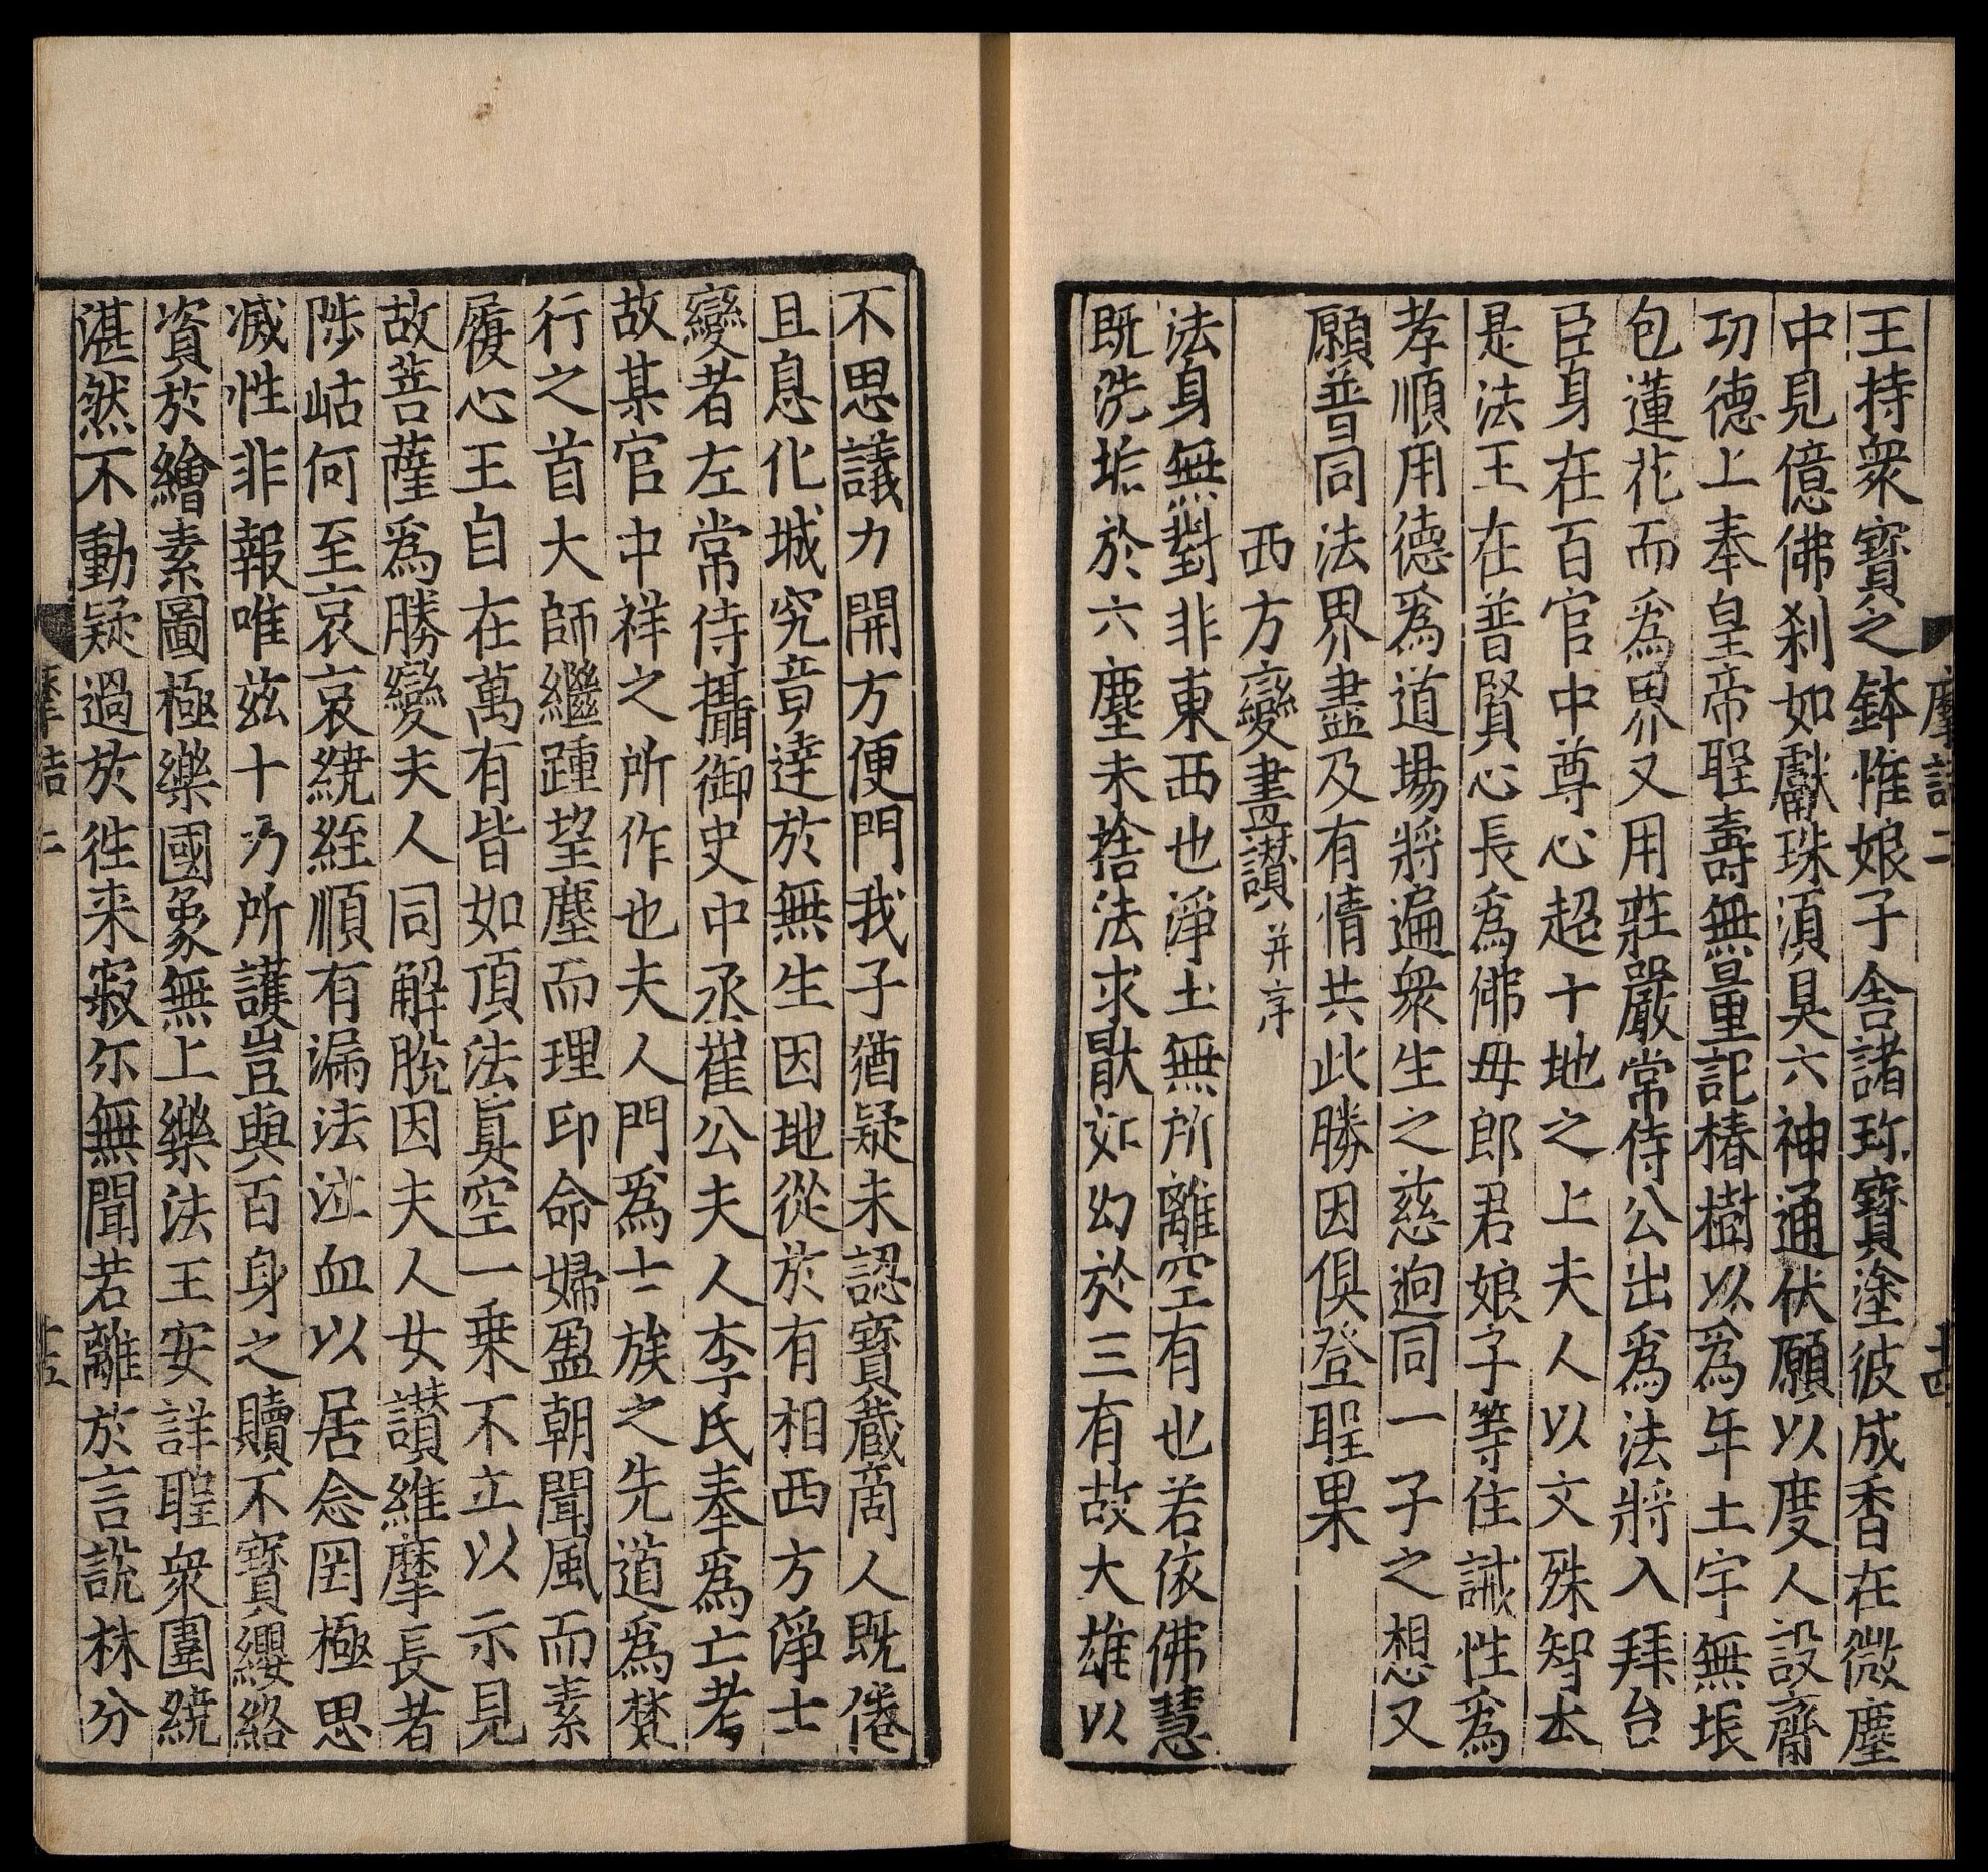 王持衆寶之鉢惟娘子舎諸珎寶塗彼成香在微塵
中見億佛刹如獻珠湏具六神通伏願以度人設齋
功德上奉皇帝聖壽無量記椿樹以為年土宇無垠
包蓮花而為界又用莊嚴常侍公出為法將入拜台
臣身在百官中尊心超十地之上夫人以文殊智本
是法王在普賢心長為佛母郎君娘子等住誡性為
孝順用德為道場將遍衆生之慈逈同一子之想又
願普同法界盡及有情共此勝因俱登聖果
西方變畫讃并序
法身無對非東西也淨土無所離空有也若依佛慧
既洗垢於六塵未捨法求猒如幻於三有故大雄以
摩詰二
不思議力開方便門我子猶疑未認寶蔵商人既倦
且息化城究竟達於無生因地從於有相西方淨土
變者左常侍攝御史中丞崔公夫人李氏奉為亡考
故某官中祥之所作也夫人門為士族之先道為梵
行之首大師繼踵望塵而理印命婦盈朝聞風而素
履心王自在萬有皆如頂法眞空一乗不立以示見
故菩薩為勝變夫人同解脱因夫人女讃維摩長者
陟岵何至哀哀繞絰順有漏法泣血以居念罔極思
滅性非報唯兹十力所護豈與百身之贖不寶纓絡
資於繪素圖極樂國象無上樂法王安詳聖衆圍繞
湛然不動疑過於徃来寂尓無聞若離於言説林分